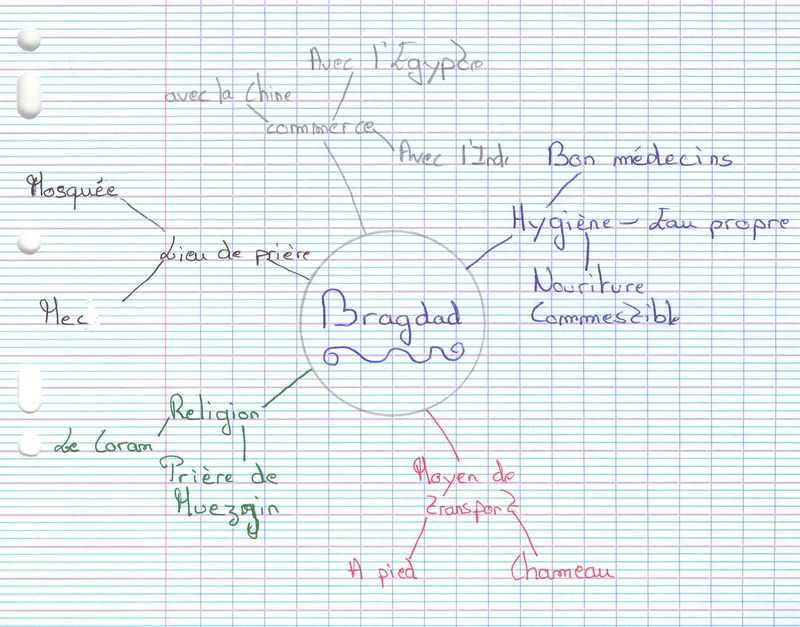 Avec l'Egypte
avec la Chine
commerce
Avec l'Inde
Bon médecins
Mosquée
Hygiène - Eau propre
Lieu de prière
Nouriture
Commestible
Mec
Bragdad
Religion
Le Coran
Prière de
Muezzin
Moyen de
transport
A pied
Chameau